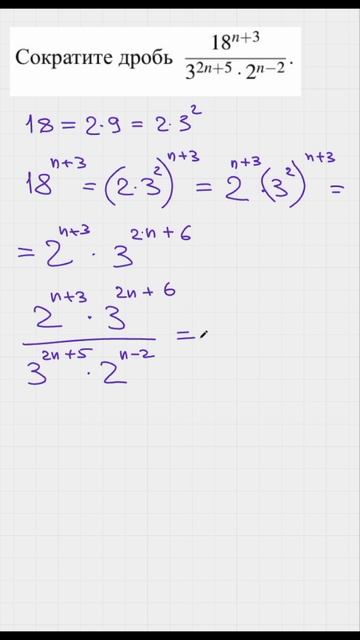 Сократите дробь 18^{n+3} / (3^{2n+5} · 2^{n−2}).
18 = 2·9 = 2·3^2
18^{n+3} = (2·3^2)^{n+3} = 2^{n+3} · (3^2)^{n+3} =
= 2^{n+3} · 3^{2·n+6}
(2^{n+3} · 3^{2n+6}) / (3^{2n+5} · 2^{n−2}) =